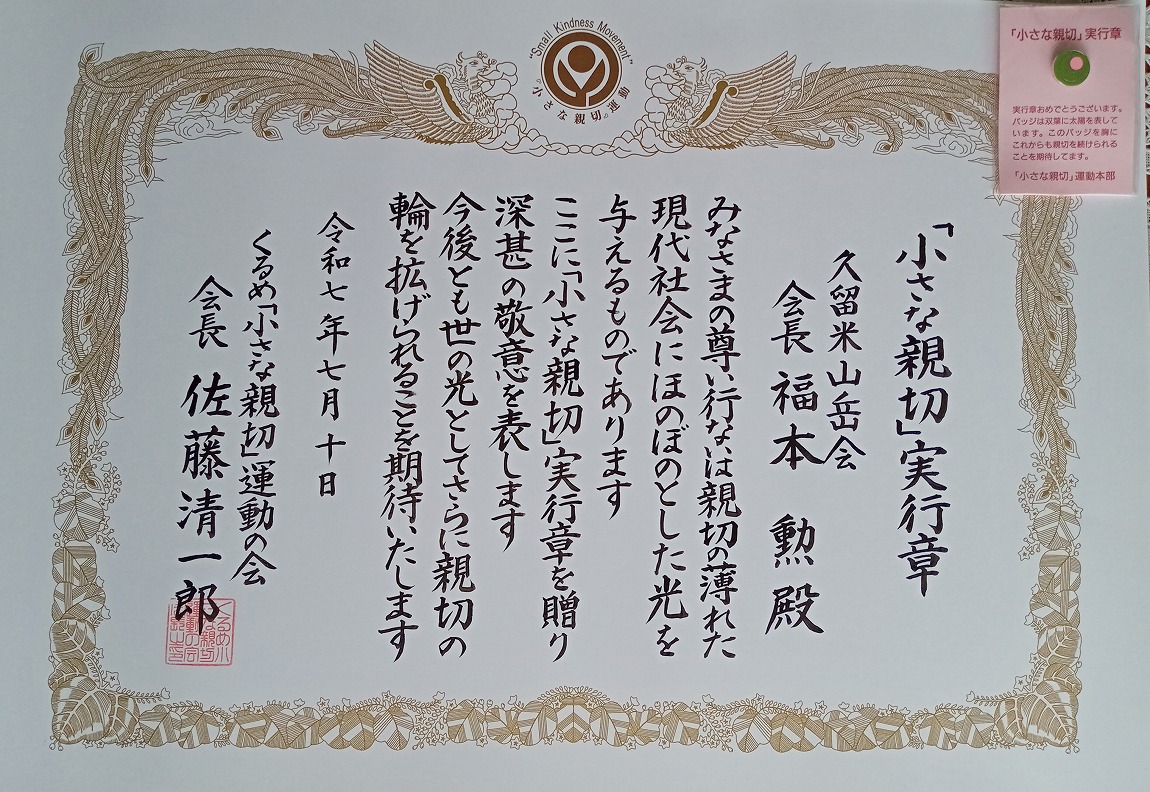 "Small Kindness Movement"
『小さな親切』運動
「小さな親切」実行章
実行章おめでとうございます。
バッジは双葉に太陽を表して
います。このバッジを胸に
これからも親切を続けられる
ことを期待してます。
「小さな親切」運動本部
「小さな親切」実行章
久留米山岳会
会長 福本 勲 殿
みなさまの尊い行ないは親切の薄れた
現代社会にほのぼのとした光を
与えるものであります
ここに「小さな親切」実行章を贈り
深甚の敬意を表します
今後とも世の光としてさらに親切の
輪を拡げられることを期待いたします
令和七年七月十日
くるめ「小さな親切」運動の会
会長 佐藤清一郎